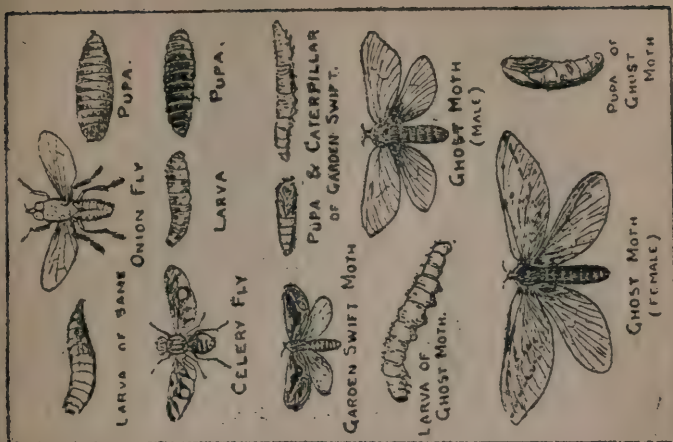 LARVA OF SAME
ONION FLY
PUPA.
CELERY FLY
LARVA
PUPA.
GARDEN SWIFT MOTH
PUPA & CATERPILLAR
OF GARDEN SWIFT.
LARVA OF
GHOST MOTH.
GHOST MOTH
(MALE)
GHOST MOTH
(FEMALE)
PUPA OF
GHOST
MOTH